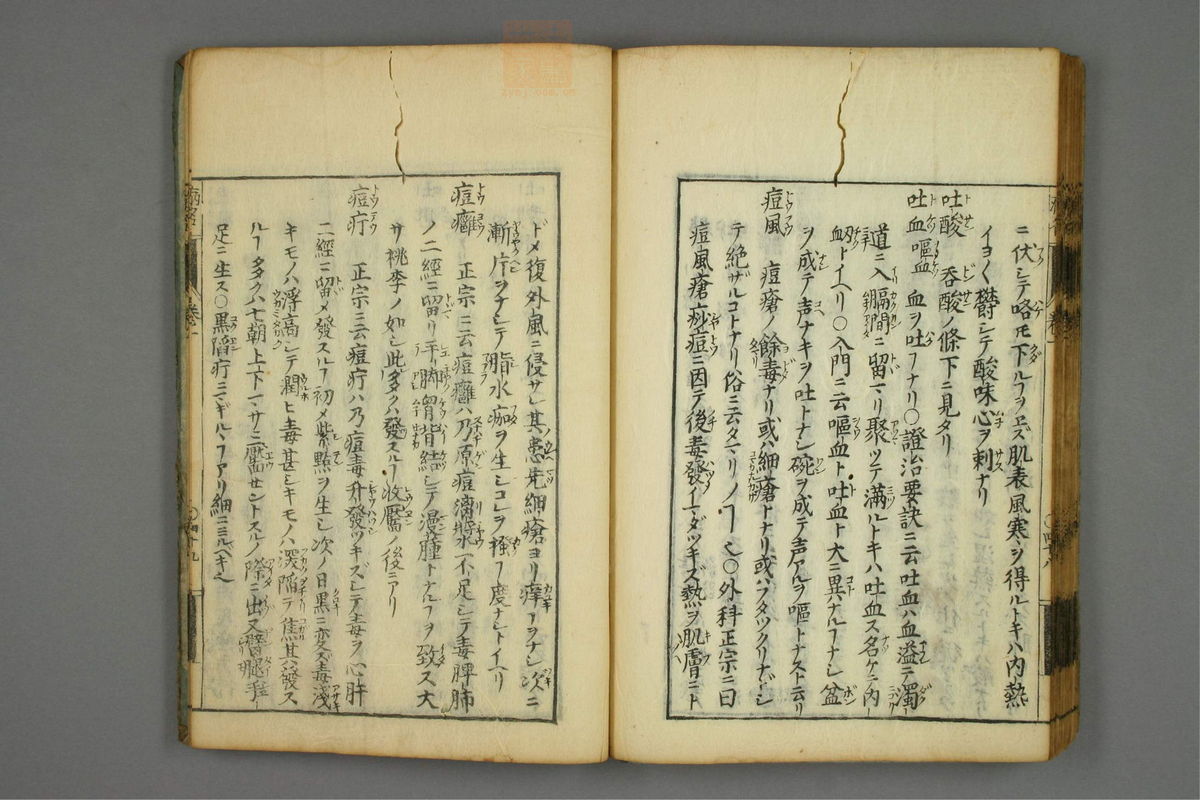 ニ伏シテ咯モ下ルヿヲヱズ肌表風寒ヲ得ルトキハ内熱
イヨ〱欝シテ酸味心ヲ刺ナリ
吐酸 呑酸ノ條下ニ見タリ
吐血嘔血 血ヲ吐フナリ〇證治要訣ニ云吐血ハ血溢テ濁
道ニ入膈間ニ留マリ聚ツテ満ルトキハ吐血ス名ケテ内
衂トイヘリ〇入門ニ云嘔血ト吐血ト大ニ異ナルヿナシ盆
ヲ成テ声ナキヲ吐トナシ碗ヲ成テ声アルヲ嘔トナスト云リ
痘風 痘瘡ノ餘毒ナリ或ハ細瘡トナリ或ハフタツクリナドシ
テ絶ザルコトナリ俗ニ云タマリノヿ也〇外科正宗ニ曰
痘風瘡痧痘ニ因テ後毒發イマダツキズ熱ヲ肌膚ニト
ドメ復外風ニ侵サレ其患先細瘡ヨリ痒ヿヲナシ次ニ
漸片ヲナシテ脂水痂ヲ生シコレヲ掻ヿ度ナシトイヘリ
痘癰 正宗ニ云痘癰ハ乃原痘漓漿不足シテ毒脾肺
ノ二經ニ留リ手脚胸背結シテ漫腫トナルヿヲ致ス大
サ桃李ノ如シ此多クハ發スルヿ收靨ノ後ニアリ
痘疔 正宗ニ云痘疔ハ乃痘毒升發ツキズシテ毒ヲ心肝
二經ニ留メ發スルヿ初メ紫點ヲ生シ次ノ日黒ニ変ズ毒淺
キモノハ浮高シテ潤ヒ毒甚シキモノハ深陥テ焦其ハ發ス
ルヿ多クハ七朝上下マサニ靨セントスルノ際ニ出又臂腿手
足ニ生ス〇黒陷疔ニマギルヽヿアリ細ニミルベキ也